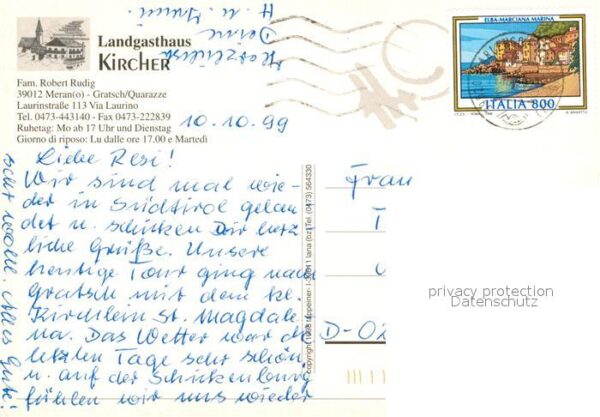 Landgasthaus
KIRCHER
Fam. Robert Rudig
39012 Meran(o) - Gratsch/Quarazze
Laurinstraße 113 Via Laurino
Tel. 0473-443140 - Fax 0473-222839
Ruhetag: Mo ab 17 Uhr und Dienstag
Giorno di riposo: Lu dalle ore 17.00 e Martedì
ELBA-MARCIANA MARINA
ITALIA 800
10.10.99
Liebe Resi!
Wir sind mal wie-
der in Südtirol gelan
det u. schicken Dir herz
liche Grüße. Unsere
heutige Tour ging nach
Gratsch mit dem kl.
Kirchlein St. Magdale
na. Das Wetter war die
letzten Tage sehr schön
u. auf der Schickenburg
fühlen wir uns wieder
sehr wohl. Alles Gute!
Herzlichst
Deine
H. u.
Frau
T
D-02
privacy protection
Datenschutz